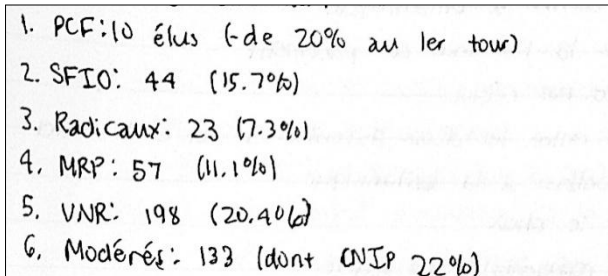 1. PCF: 10 élus (-de 20% au 1er tour)
2. SFIO: 44 (15.7%)
3. Radicaux: 23 (7.3%)
4. MRP: 57 (11.1%)
5. VNR: 198 (20.4%)
6. Modérés: 133 (dont CNIP 22%)